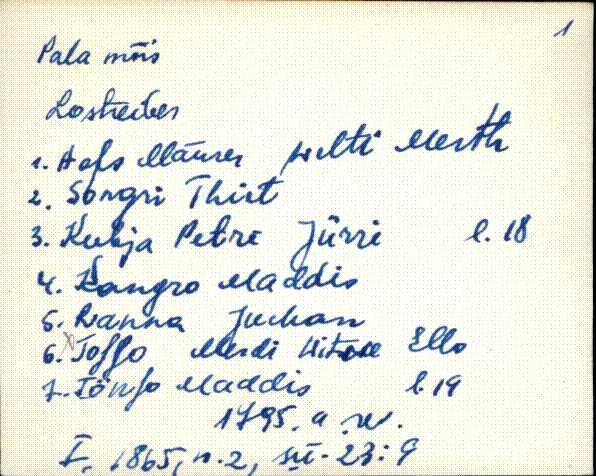 1
Pala mõis
Lostreiber
1. Hofs Mäurer Pelti Merth
2. Sorgri Thiit
3. Kubja Petre Jürri l. 18
4. Kangro Maddis
5. Ranna Juhan
6. Toffo Merdi Ello
7. Tönso Maddis l. 19
1795. a
I. 1865, n. 2, 23: 9